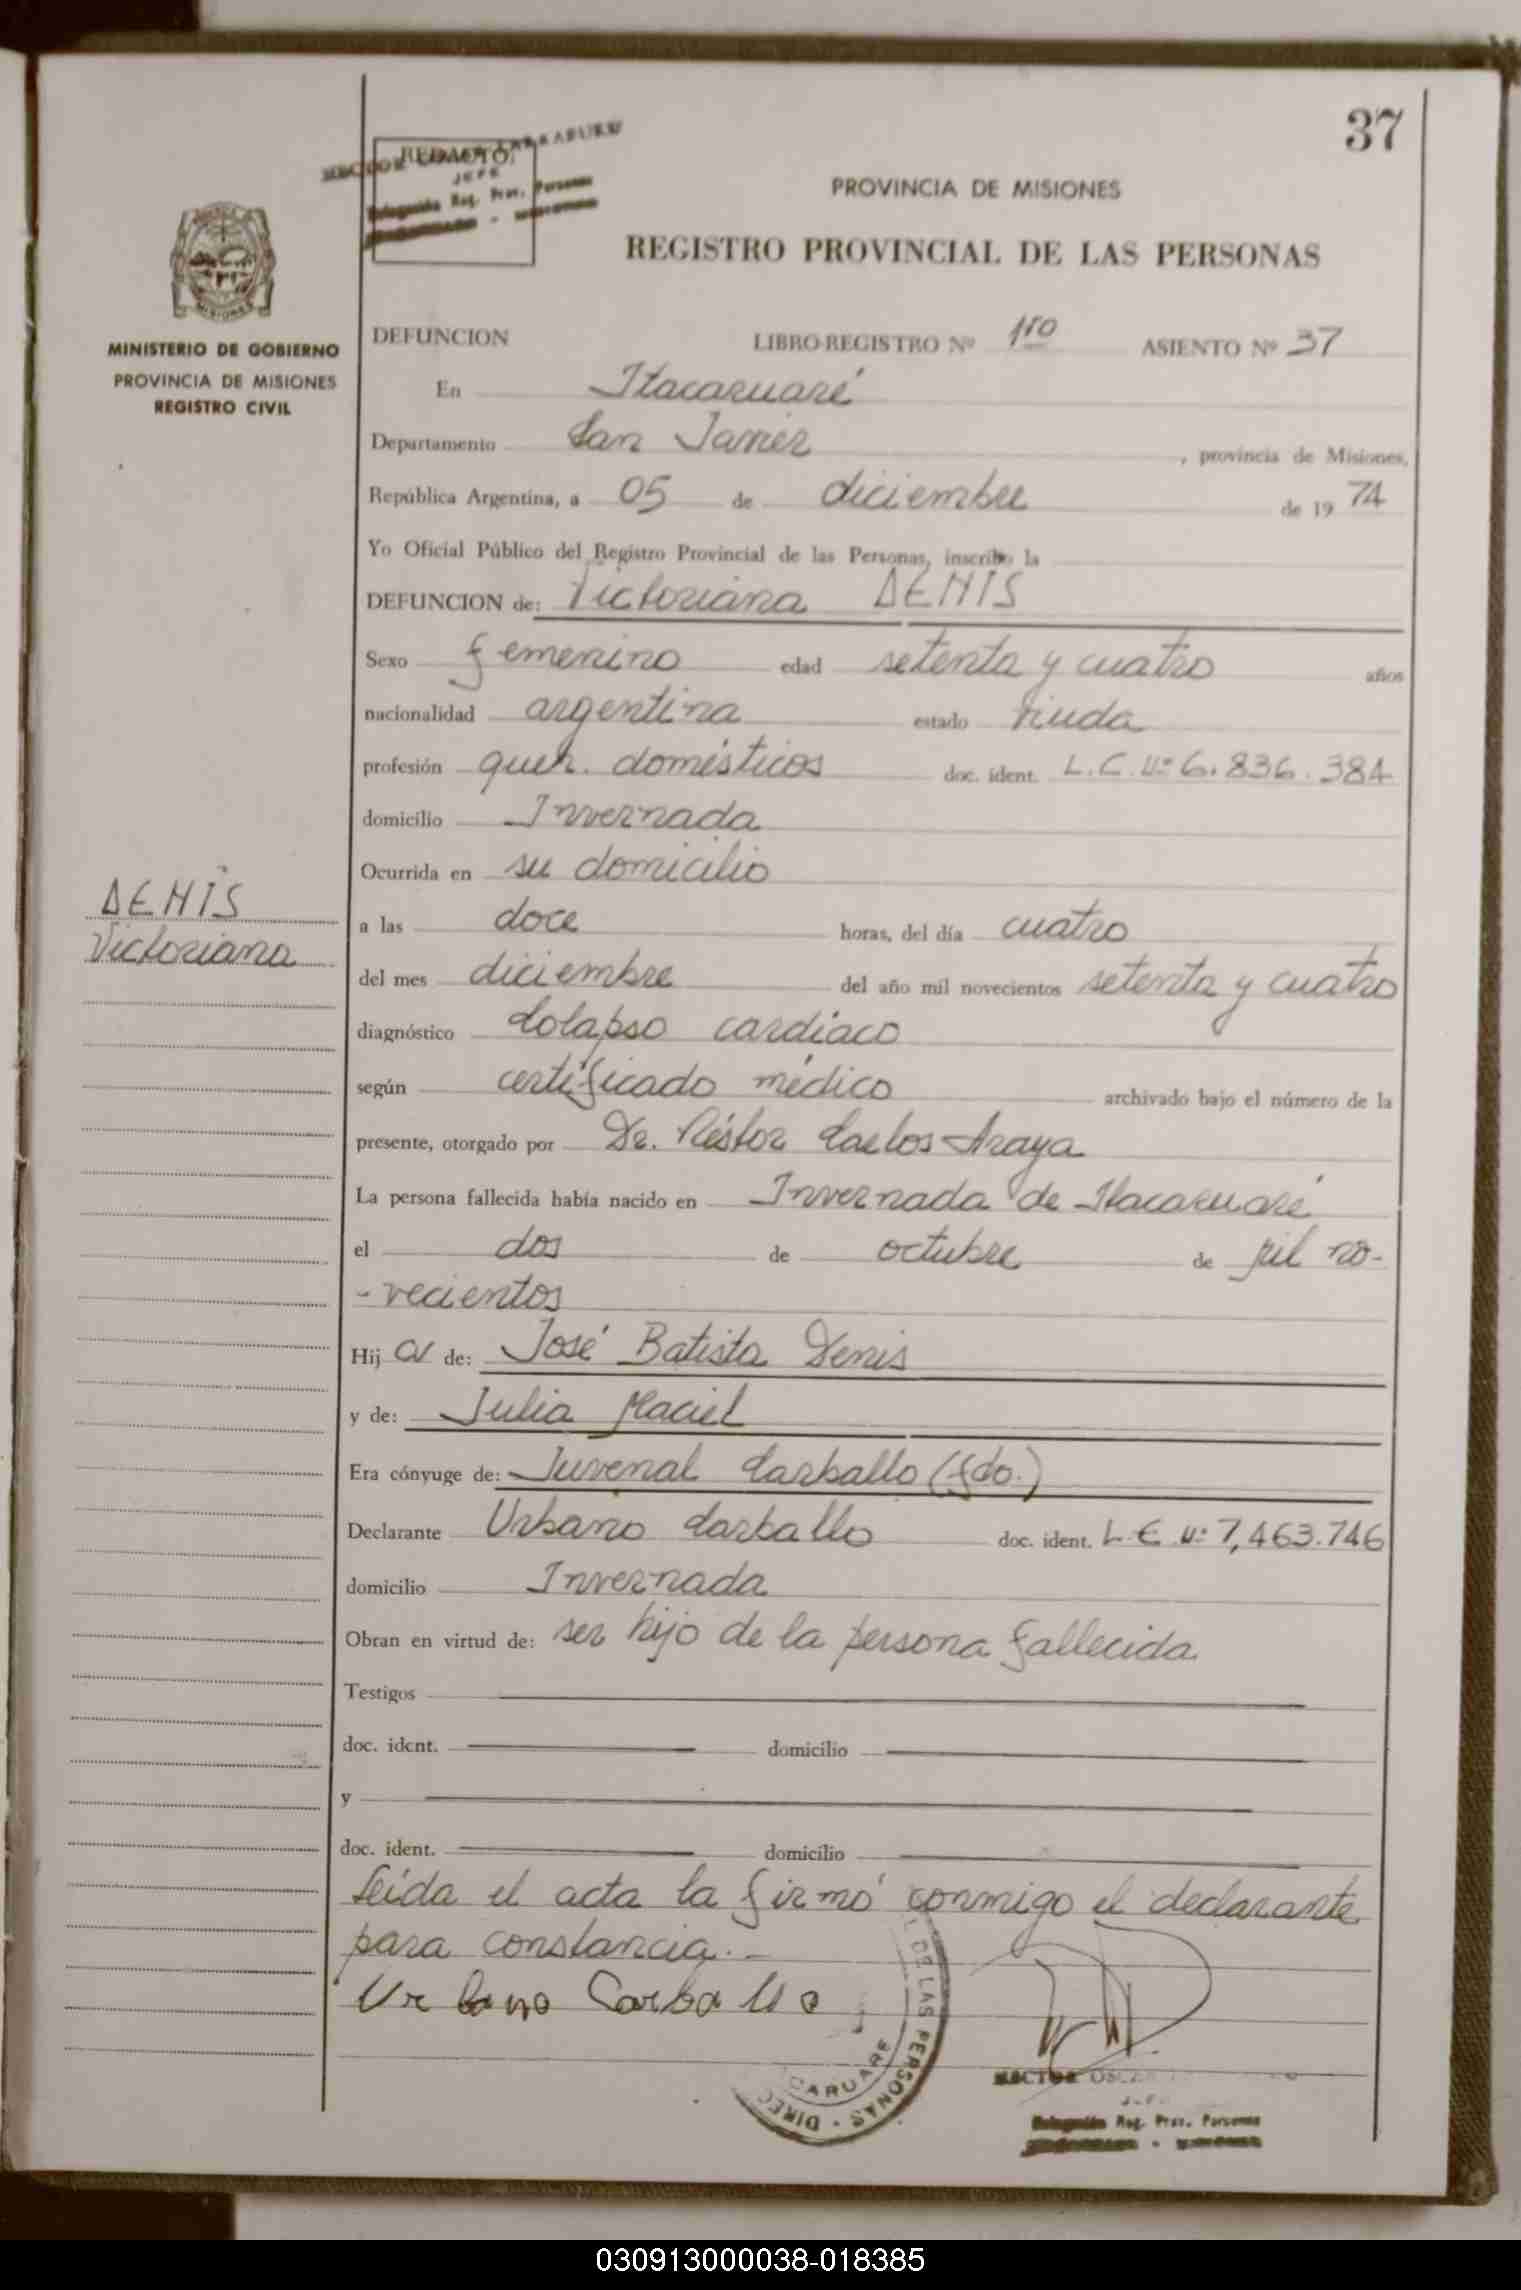 37
REDACTO:
JEFE
Delegación Reg. Prov. Personas
PROVINCIA DE MISIONES
REGISTRO PROVINCIAL DE LAS PERSONAS
MISIONES
MINISTERIO DE GOBIERNO
PROVINCIA DE MISIONES
REGISTRO CIVIL
DEFUNCION LIBRO-REGISTRO Nº 1ro ASIENTO Nº 37
En Itacaruaré
Departamento San Javier, provincia de Misiones,
República Argentina, a 05 de diciembre de 1974
Yo Oficial Público del Registro Provincial de las Personas, inscribo la
DEFUNCION de: Victoriana DENIS
Sexo femenino edad setenta y cuatro años
nacionalidad argentina estado viuda
profesión queh. domésticos doc. ident. L.C. Nº 6.836.384
domicilio Invernada
Ocurrida en su domicilio
DENIS
Victoriana
a las doce horas, del día cuatro
del mes diciembre del año mil novecientos setenta y cuatro
diagnóstico Colapso cardíaco
según certificado médico archivado bajo el número de la
presente, otorgado por Dr. Néstor Carlos Araya
La persona fallecida había nacido en Invernada de Itacaruaré
el dos de octubre de mil no-
-vecientos
Hij a de: José Batista Denis
y de: Julia Maciel
Era cónyuge de: Juvenal Carballo (fdo.)
Declarante Urbano Carballo doc. ident. L.E Nº 7,463.746
domicilio Invernada
Obran en virtud de: ser hijo de la persona fallecida
Testigos
doc. ident. domicilio
y
doc. ident. domicilio
Leída el acta la firmó conmigo el declarante
para constancia.-
Urbano Carballo
DE LAS PERSONAS - DIREC
CARUARE
HECTOR OSCAR
JEFE
Delegación Reg. Prov. Personas
030913000038-018385